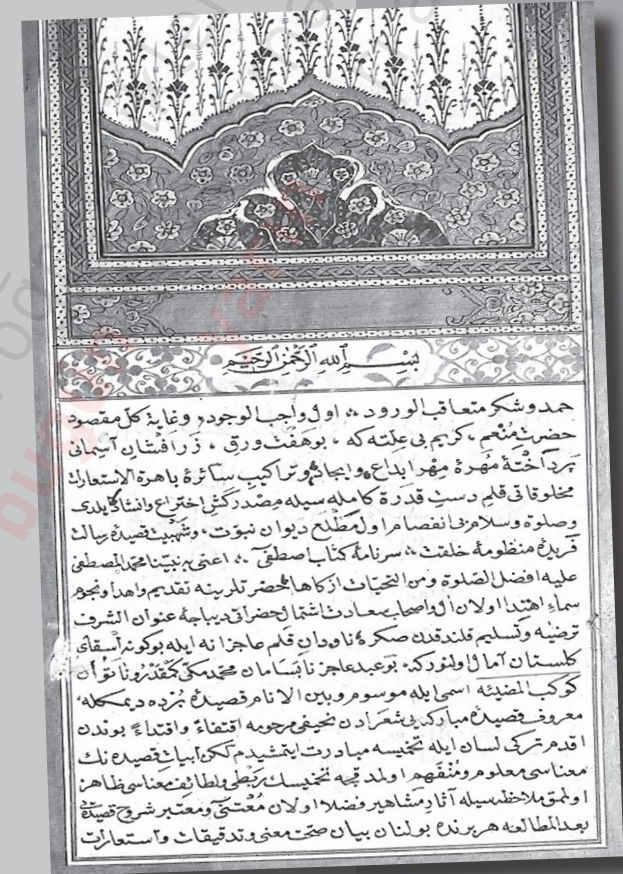 بسم الله الرحمن الرحيم
حمد وشكر متعاقب الورود، اول واجب الوجود، وغاية كل مقصود
حضرت منعم، كريم بى علته كه، بو هفت ورق، زرافشان آسمانى
پرداختۀ مهرۀ مهر ابداع وايجاد وتراكيب سائرۀ باهرة الاستعارات
مخلوقاتى قلم دست قدرة كامله سيله مصدركش اختراع وانشا قيلدى
وصلوة وسلام بى انفصام اول مطلع ديوان نبوت، وشهبيت قصيدۀ رسالت
فريدۀ منظومۀ خلقت، سرنامۀ كتاب اصطفى، اعنى به نبينا محمد المصطفى
عليه افضل الصلوة ومن التحيات ازكاها حضرتلرينه تقديم واهدا ونجوم
سماء اهتدا اولان ال واصحاب سعادت اشتمال حضراتى ديباجۀ عنوان الشرف
ترضيه وتسليم قلندقدن صكره ناودان قلم عاجزانه ايله بوكونه اسقاى
كلستان آمال اولنور كه بو عبد عاجز نابسامان محمد مكى
كوكب المضيئه اسمى ايله موسوم وبين الانام قصيدۀ برده ديمكله
معروف قصيدۀ مباركه يى شعرادن نحيفى مرحومه اقتفاءً واقتداءً بوندن
اقدم تركى لسان ايله تخميسه مبادرت ايتمشيدم لكن ابيات قصيده نك
معناسى معلوم ومنفهم اولمدقچه تخميسك ربطى ولطائف معناسى ظاهر
اولمق ملاحظه سيله آثار مشاهير فضلا اولان معتنى ومعتبر شروح قصيده يى
بعد المطالعه هر برنده بولنان بيان صحت معنى وتدقيقات واستعارات